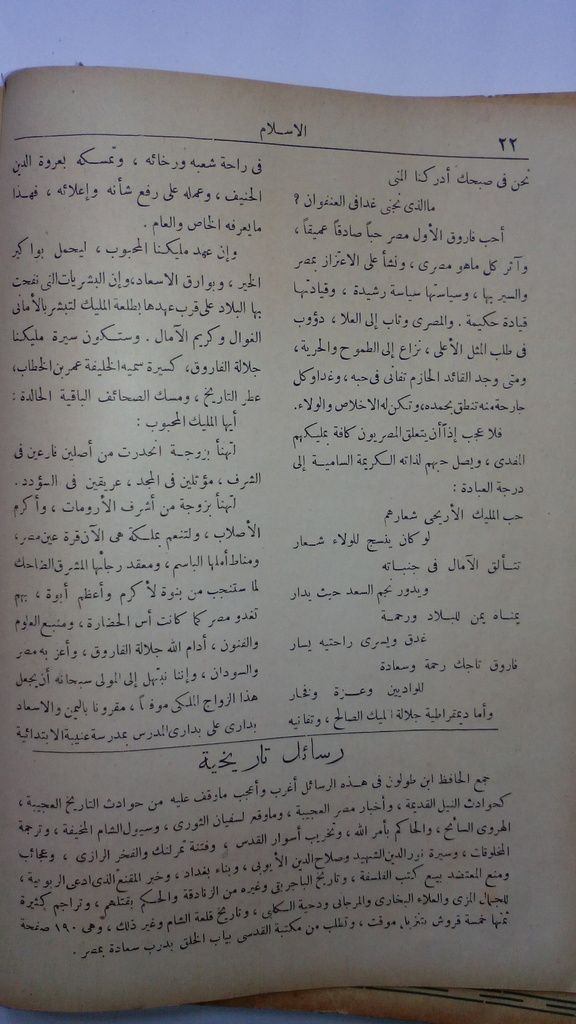 ٢٢
الاسلام
نحن فى صبحك أدركنا المنى
ما الذى نجنى غدا فى العنفوان ؟
أحب فاروق الأول مصر حباً صادقاً عميقاً ،
وآثر كل ماهو مصرى ، ونشأ على الاعتزاز بمصر
والسير بها ، وسياستها سياسة رشيدة ، وقيادتها
قيادة حكيمة . والمصرى وثاب إلى العلا ، دؤوب
فى طلب المثل الأعلى ، نزاع إلى الطموح والحرية ،
ومتى وجد القائد الحازم تفانى فى حبه ، وغدا وكل
جارحة منه تنطق بحمده ، وتكن له الاخلاص والولاء .
فلا عجب إذاً أن يتعلق المصريون كافة بمليكهم
المفدى ، ويصل حبهم لذاته الكريمة السامية إلى
درجة العبادة :
حب المليك الأريحى شعارهم
لو كان ينسج للولاء شعار
تتألق الآمال فى جنباته
ويدور نجم السعد حيث يدار
يمناه يمن للبلاد ورحمة
غدق ويسرى راحتيه يسار
فاروق تاجك رحمة وسعادة
للواديين وعزة وفخار
وأما ديمقراطية جلالة المليك الصالح ، وتفانيه
فى راحة شعبه ورخائه ، وتمسكه بعروة الدين
الحنيف ، وعمله على رفع شأنه وإعلائه ، فهذا
ما يعرفه الخاص والعام .
وإن عهد مليكنا المحبوب ، ليحمل بواكير
الخير ، وبوارق الاسعاد ، وإن البشريات التى نفحت
بها البلاد على قرب عهدها بطلعة المليك لتبشر بالأمانى
الغوال وكريم الآمال . وستكون سيرة مليكنا
جلالة الفاروق ، كسيرة سميه الخليفة عمر بن الخطاب ،
عطر التاريخ ، ومسك الصحائف الباقية الخالدة :
أيها المليك المحبوب :
لتهنأ بزوجة انحدرت من أصلين فارعين فى
الشرف ، مؤثلين فى المجد ، عريقين فى السؤدد .
لتهنأ بزوجة من أشرف الأرومات ، وأكرم
الأصلاب ، ولتنعم بملكة هى الآن قرة عين مصر ،
ومناط أملها الباسم ، ومعقد رجائها المشرق الضاحك
لما ستنجب من بنوة لأكرم وأعظم أبوة ، بهم
تغدو مصر كما كانت أس الحضارة ، ومنبع العلوم
والفنون ، أدام الله جلالة الفاروق ، وأعز به مصر
والسودان ، وإننا نبتهل إلى المولى سبحانه أن يجعل
هذا الزواج الملكى موفقاً ، مقرونا باليمن والاسعاد
بدارى على بدارى المدرس بمدرسة عنيبة الابتدائية
رسائل تاريخية
جمع الحافظ ابن طولون فى هذه الرسائل أغرب وأعجب ماوقف عليه من حوادث التاريخ العجيبة ،
كحوادث النيل القديمة ، وأخبار مصر العجيبة ، وماوقع لسفيان الثورى ، وسيول الشام المخيفة ، وترجمة
الهروى السائح ، والحاكم بأمر الله ، وتخريب أسوار القدس ، وفتنة تمرلنك والفخر الرازى ، وعجائب
المخلوقات ، وسيرة نور الدين الشهيد وصلاح الدين الأيوبى ، وبناء بغداد ، وخبر المقنع الذى ادعى الربوبية ،
ومنع المعتضد بيع كتب الفلسفة ، وتاريخ الباجربقى وغيره من الزنادقة والحكم بقتلهم ، وتراجم كثيرة
للجمال المزى والعلاء البخارى والمرجانى ودحية الكلبى ، وتاريخ قلعة الشام وغير ذلك ، وهى ١٩٠ صفحة
ثمنها خمسة قروش بتنزيل موقت ، وتطلب من مكتبة القدسى بباب الخلق بدرب سعادة بمصر .